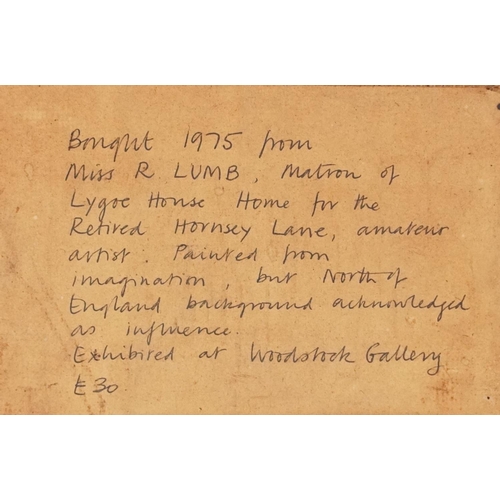 Bought 1975 from
Miss R LUMB, Matron of
Lygoe House Home for the
Retired Hornsey Lane, amateur
artist. Painted from
imagination, but North of
England background acknowledged
as influence.
Exhibited at Woodstock Gallery
£30